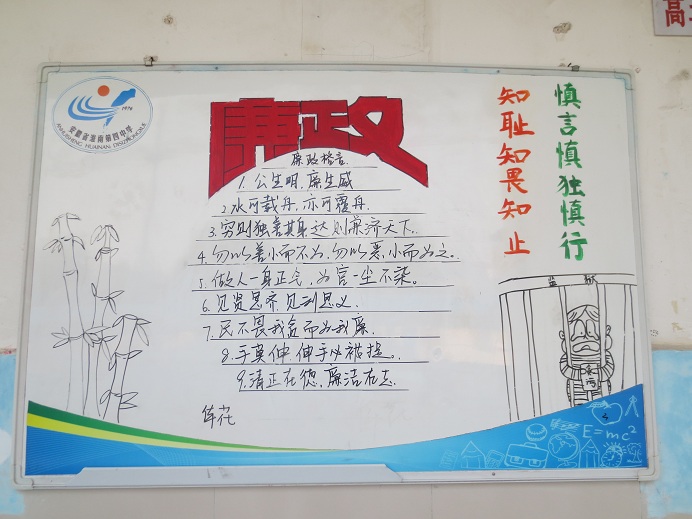 高
1974
安徽省淮南第四中学
廉政
慎言慎独慎行
知耻知畏知止
廉政格言
1. 公生明,廉生威
2. 水可载舟,亦可覆舟
3. 穷则独善其身,达则兼济天下.
4. 勿以善小而不为,勿以恶小而为之。
5. 做人一身正气,为官一尘不染。
6. 见贤思齐,见利思义
7. 民不畏我贪而为我廉.
8. 手莫伸 伸手必被捉.
9. 清正在德,廉洁在志.
监狱
E=mc²